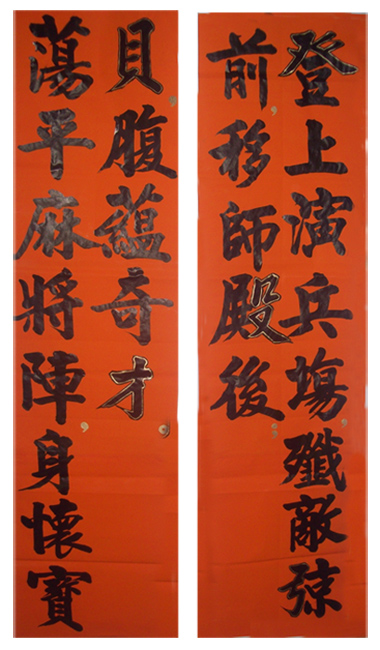 登上演兵塲,殲敵
前,移師殿後;
蕩平麻將陣,身懷寶
貝,腹蘊奇才。